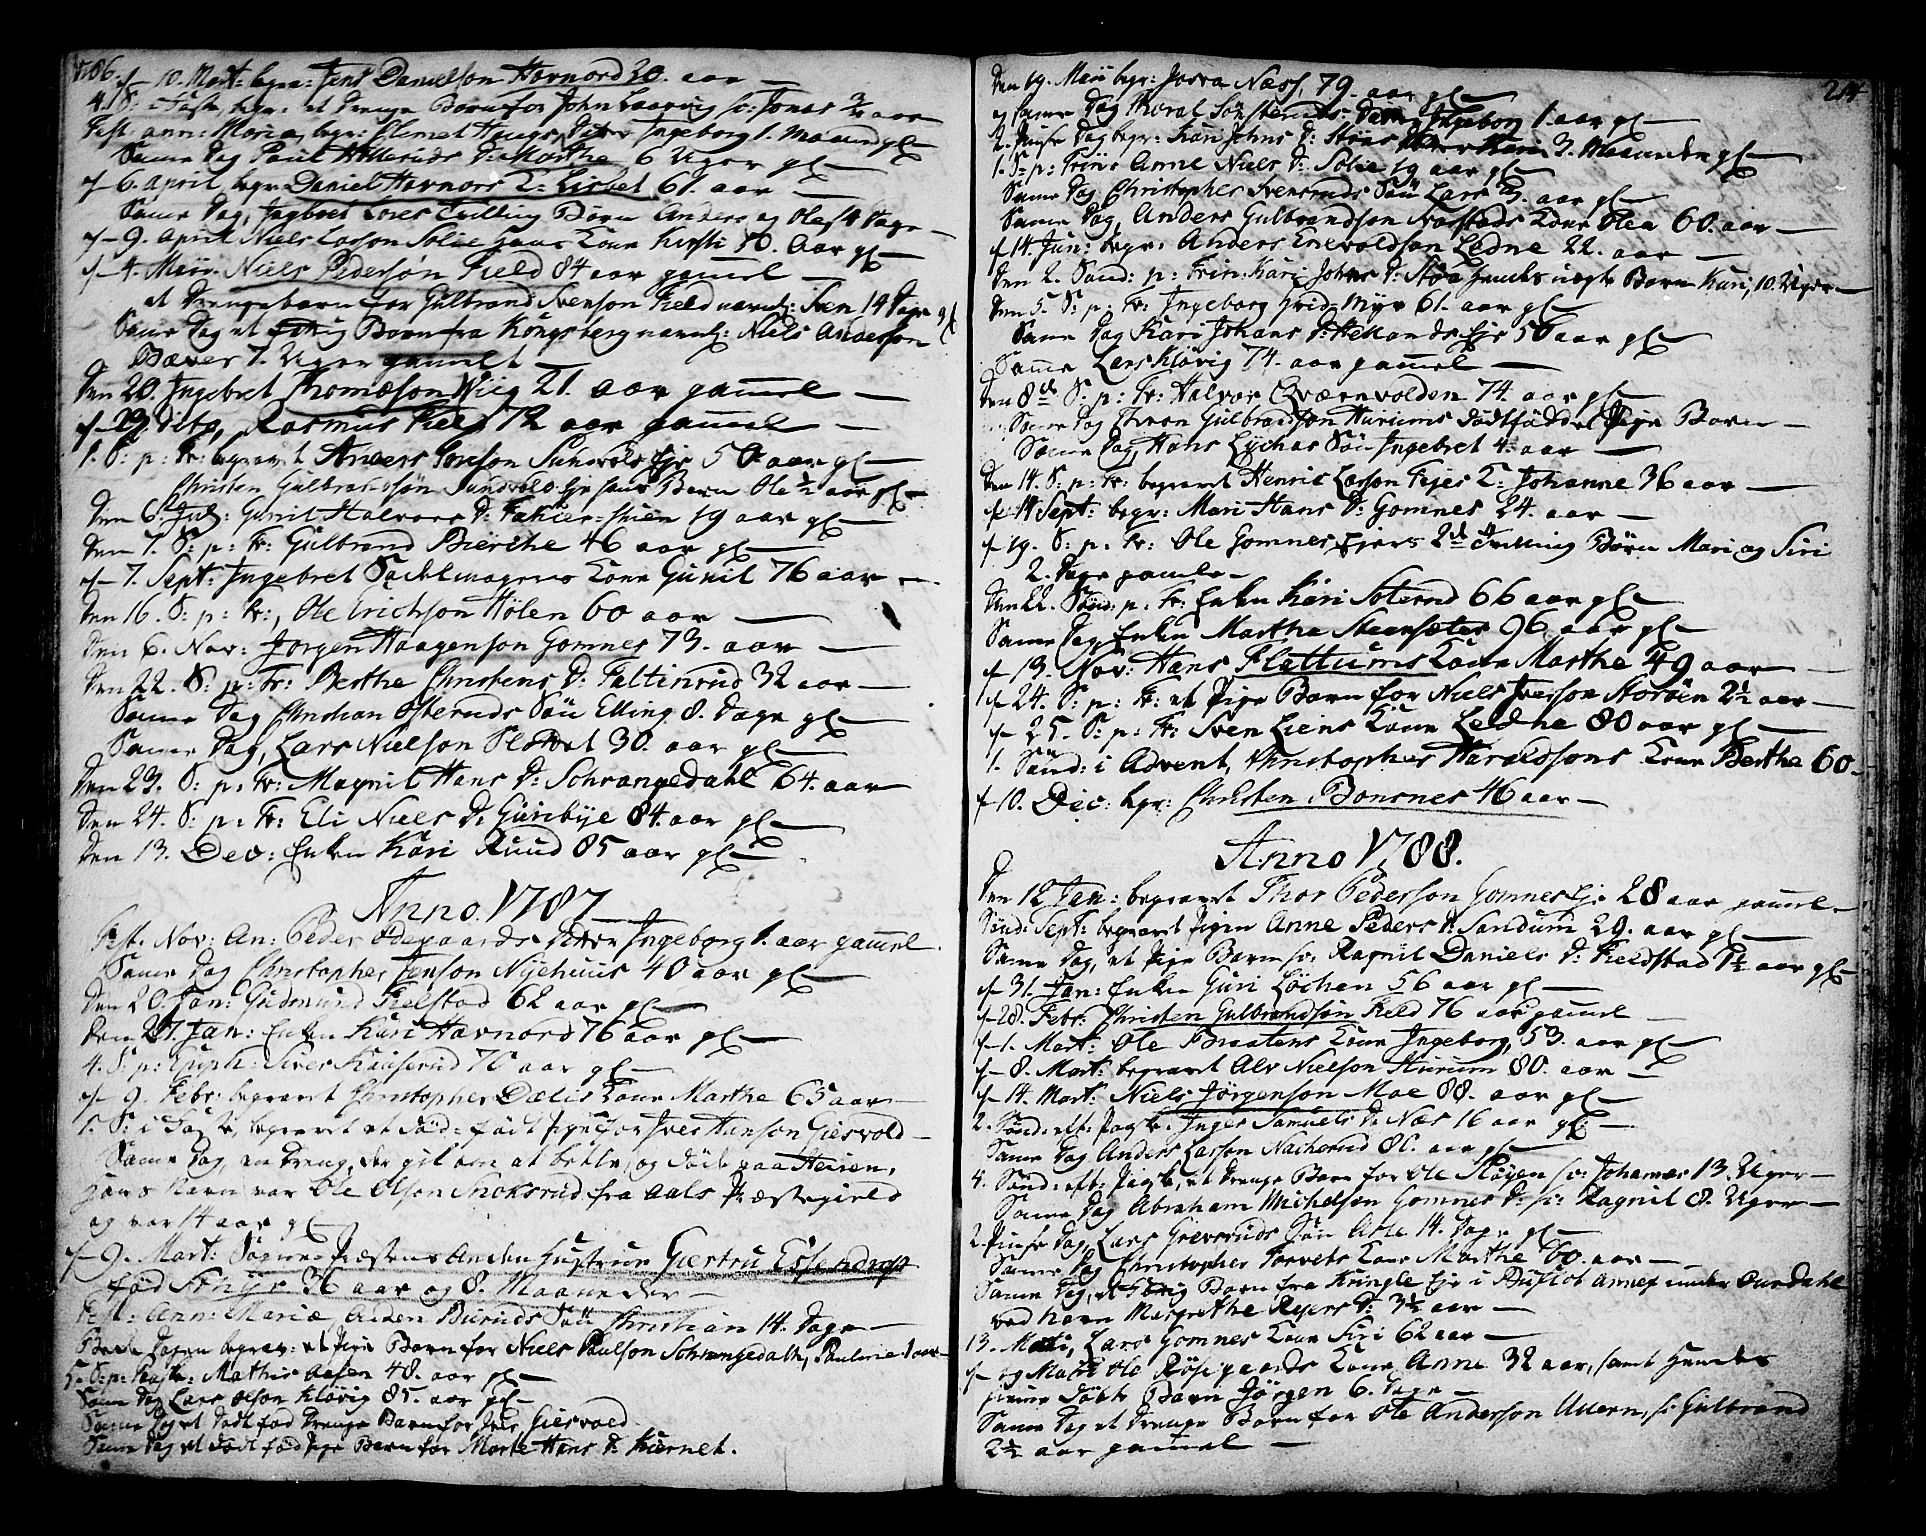 1786.
d 10. Mart: begr: Jens Danielson Havnord 30. aar
4. S: i Faste, begr: et Drenge Barn for John Laarvig s: Jonas 3/4 aar
Fest: ann: Mariæ, begr: Clemet Haugs Datter Ingeborg 1. Maaned gl
Samme Dag Paul Hollerud D: Marthe 6 Uger gl
d 6. April begr: Daniel Havnors K: Lisbet 61. aar
Samme Dag, Ingbret Lores Tvilling Børn Anders og Ole
d 9. April Niels Larson Solie hans Kone Kirsti 70. Aar gl
d 4. Maii. Niels Pedersøn Field 84 aar gammel
et Drengebarn for Gulbrand Svenson Field navnl: Sven 14 Dage gl
Samme Dag et Barn fra Kongsberg navnl: Niels Anderson
Bæver 7. Uger gammelt
Den 20. Ingebret Thomæson Wiig 21. aar gammel
d 29 dito, Rasmus Field 72 aar gammel
1. S: p: Tr: begravet Anders Sundvolds Eje 50 aar gl
Christen Gulbrandsøn Sundvolds Eje hans Barn Ole 1/2 aar gl
Den 6. Jul: Gunil Halvors D: Fakier-stuen 19 aar gl
Den 7. S: p: Tr: Gulbrand Bierche 46 aar gl
d 7. Sept: Ingebret Sadelmagers Kone Gunil 76 aar
Den 16. S: p: Tr:, Ole Erichson Hølen 60 aar
Den 6. Nov: Jorgen Haagenson Gomnes 73. aar
Den 22. S: p: Tr: Berthe Christens D: Taltinrud 32 aar
Samme Dag Christian Østeruds Søn Elling 8. Dage gl
Samme Dag, Lars Nielson 30. aar gl
Den 23. S: p: Tr: Magnil Hans D: Schrangedahl 64. aar
Den 24. S: p: Tr: Eli Niels D: Guribye 84. aar gl
Den 13. Dec: Enken Kari Ruud 85 aar gl
Anno. 1787
Fest. Nov: An: Peder Ødegaards Datter Ingeborg 1. aar gammel.
Samme Dag Christopher Jenson Nyehuus 40 aar gl
Den 20. Jan: Gudmund Fielstad 62 aar gl
Den 27. Jan: Enken Kari Havnord 76 aar gl
4. S: p: Epiph: Siver Kauserud 76 aar gl
d 9. Febr: begravet Christopher Dælis Kone Marthe 65 aar
1. S: i Faste, begravet et død-født Pige for Iver Hanson Giesvold
Samme Dag, en Dreng, der gik om at betle, og døde paa Heien,
hans Navn var Ole Olson Snoksrud fra Aals Præstegield
og var 14 aar gl
d 9. Mart: Sogne-Præstens Anden Hustrue Giertru Essendrop
fød 36 aar og 8. Maaneder
Fest: Ann: Mariæ, Anders Bieruds Søn Christian 14. Dage
Bede Dagen begrav: et Pige Barn for Niels Paulson Schrangedahl, Pauline 1 aar
5. S: p: Paaske: Mathis Aasen 48. aar gl
Samme Dag Lars Olson Kløvig 85. aar gl
Samme Dag et dødt fød Drenge Barn for Iver Giesvold.
Samme Dag et dødt fød Pige Barn for Marte Hans D: Kiernet.
214
Den 19. Maii begr: Joran Næss, 79. aar gl
og samme Dag Thoral Sønsteruds Datter Ingeborg 1. aar gl
2. Pintse Dag begr: Kari Johns D: 3. Maaneder gl
1. S: p: Trin: Anne Niels D: Solie 19 aar gl
Samme Dag Christopher Svensruds Søn Lars aar gl
Samme Dag, Anders Gulbrandson Kone Olea 60. aar
d 14. Jun: begr: Anders Enevoldson Ledne 22. aar
Den 2. Sønd: p: Trin: Kari Johns D: hendes uægte Barn Kari, 10. Uger
Den 5. S: p: Tr: Ingeborg Hvid-Myr 61. aar gl
Samme Dag Kari Johans D: Eje 50 aar gl
Samme Lars Kløvig 74. aar gammel
Den 8de S: p: Tr: Halvor Qværnvolden 74. aar gl
Samme Dag Thron Gulbrandson Hurums dødtfødde Pige Barn
Samme Dag Hans Lychas Søn Ingebret 4. aar
Den 14. S: p: Tr: begravet Henric Larson Fejes K: Johanne 36 aar
d 14 Sept: begr: Mari Hans D: Gomnes 24. aar
d 19. S: p: Tr: Ole Gomnes Ejers 2de Tvilling Børn Mari og Siri
2. Dage gamle
Den 22. Sønd: p: Tr: Enken Kari Soterud 66 aar gl
Samme Dag Enken Marthe Steensæter 96 aar gl
d 13. Nov: Hans Flettums Kone Marthe 49 aar
d 24. S: p: Tr: et Pige Barn for Niels Iverson Storøen 2 1/2 aar
d 25. S: p: Tr: Sven Liens Kone Ledne 80 aar gl
1. Sønd: i Advent, Christopher Haraldsons Kone Berthe 60
d 10. Dec: begr: Christen Bonsnes 46 aar
Anno 1788.
Den 12 Jan: begravet Thor Pederson Gomnes Eje 28 aar gammel
Sønd: Sept: begravet Pigen Anne Peders D: Sandum 29. aar gl
Samme Dag, et Pige Barn s: Ragnil Daniels D: Fieldstad 1 1/2 aar gl
d 31. Jan: Enken Guri Løchen 56 aar gl
d 28. Febr: Christen Gulbrandsøn Field 76 aar gammel
d 1. Mart: Ole Braatens Kone Ingeborg, 53. aar gl
d 8. Mart: begravet Alv Nielson Hurum 80. aar
d 14. Mart: Niels Jörgenson Moe 88. aar gl
2. Sønd: eft: Paaske: Inger Samuels D: Næs 16 aar gl
Samme Dag Anders Larson Nacherud 86. aar gl
4. Sønd: eft: Paaske, et Drenge Barn for Ole Pløyen s: Johannes 13. Uger
Samme Dag Abraham Michelson Gomnes D: s: Ragnil 8. Uger
2. Pintse Dag Lars Grevsruds Søn Arne 14. Dage gl
Samme Dag Christopher Torvets Kone Marthe 60. aar
Samme Dag, et Barn fra Kringle Eje i Ruslob Annex under Ourdahl
ved Navn Margrethe Reiers D: 3 1/2 aar
13. Martii, Lars Gomnes Kone Siri 62 aar
d og Ole Røsegaards Kone Anne 32 aar, samt hendes
døbte Barn Jörgen 6. Dage
Samme Dag et Drenge Barn for Ole Anderson Ullern, s: Gulbrand
2 1/2 aar gammel